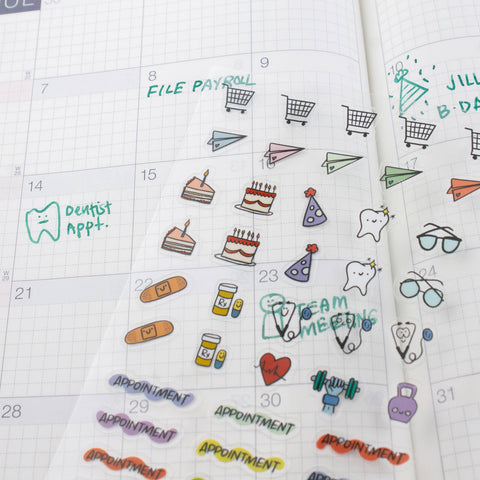 7
8
9
10
FILE PAYROLL
JILL
B·DA
14
15
16
17
Dentist
Appt.
W
29
21
22
23
24
TEAM
MEETING
Rx
Rx
28
29
30
31
APPOINTMENT
APPOINTMENT
APPOINTMENT
APPOINTMENT
APPOINTMENT
APPOINTMENT